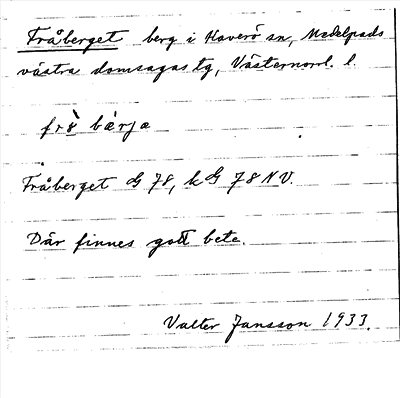 Fråberget berg i Haverö sn, Medelpads
västra domsagas tg, Västernorrl. l.
frɤ̀ bæ̀rja
Fråberget G 78, k G 78 NV.
Där finnes gott bete.
Valter Jansson 1933.